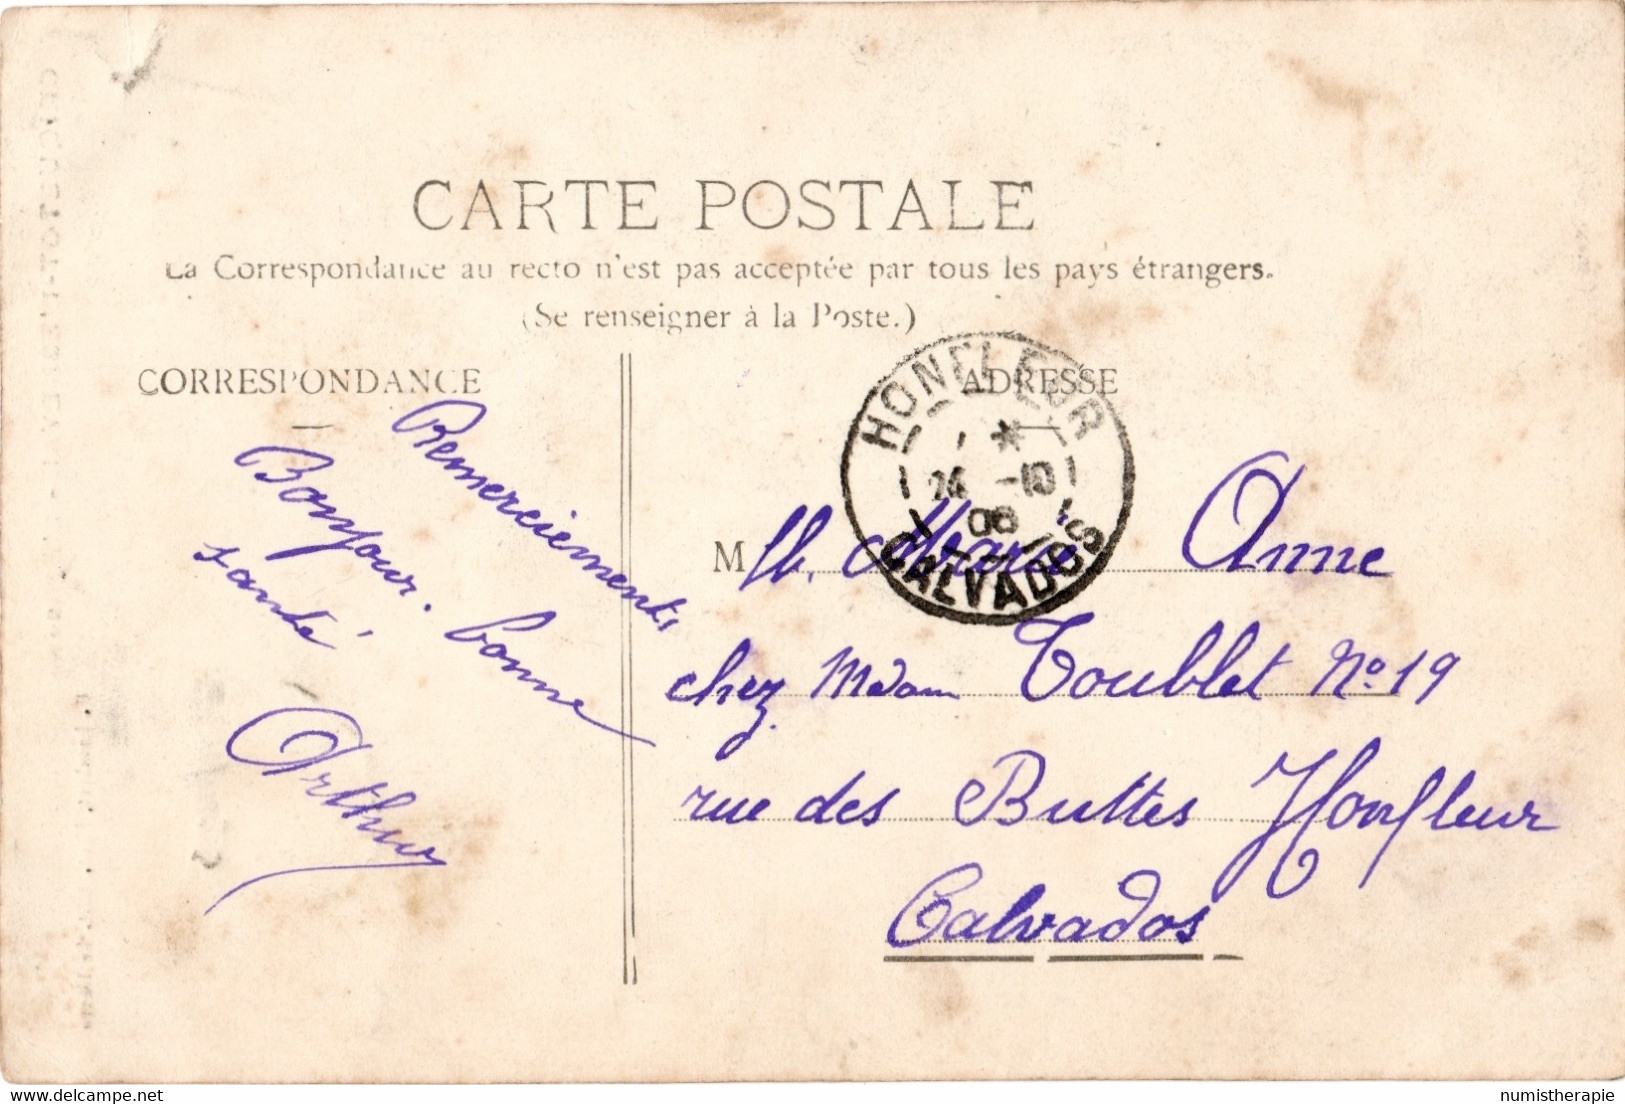 CARTE POSTALE
La Correspondance au recto n'est pas acceptée par tous les pays étrangers.
(Se renseigner à la Poste.)
CORRESPONDANCE
ADRESSE
Remerciements
Bonjour. bonne
santé
Arthur
HONFLEUR
*
-10
08
CALVADOS
M lle. Marie Anne
chez Madam Toublet No 19
rue des Buttes Honfleur
Calvados
numistherapie